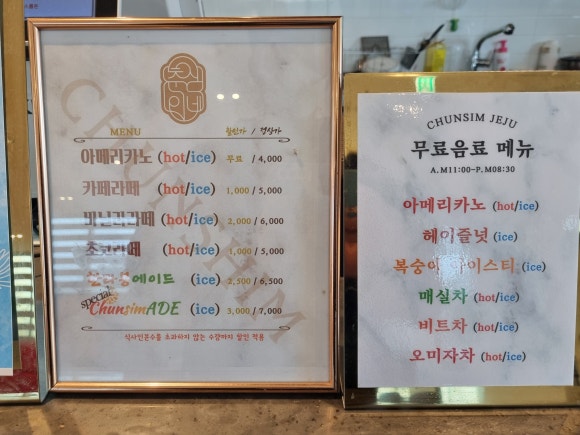 춘심이네
CHUNSHIM
MENU 할인가 / 정상가
아메리카노 (hot/ice) 무료 / 4,000
카페라떼 (hot/ice) 1,000 / 5,000
바닐라라떼 (hot/ice) 2,000 / 6,000
초코라떼 (hot/ice) 1,000 / 5,000
에이드 (ice) 2,500 / 6,500
special
ChunsimADE (ice) 3,000 / 7,000
식사인분수를 초과하지 않는 수량까지 할인 적용
CHUNSIM JEJU
무료음료 메뉴
A.M11:00-P.M08:30
아메리카노 (hot/ice)
헤이즐넛 (ice)
복숭아 아이스티 (ice)
매실차 (hot/ice)
비트차 (hot/ice)
오미자차 (hot/ice)